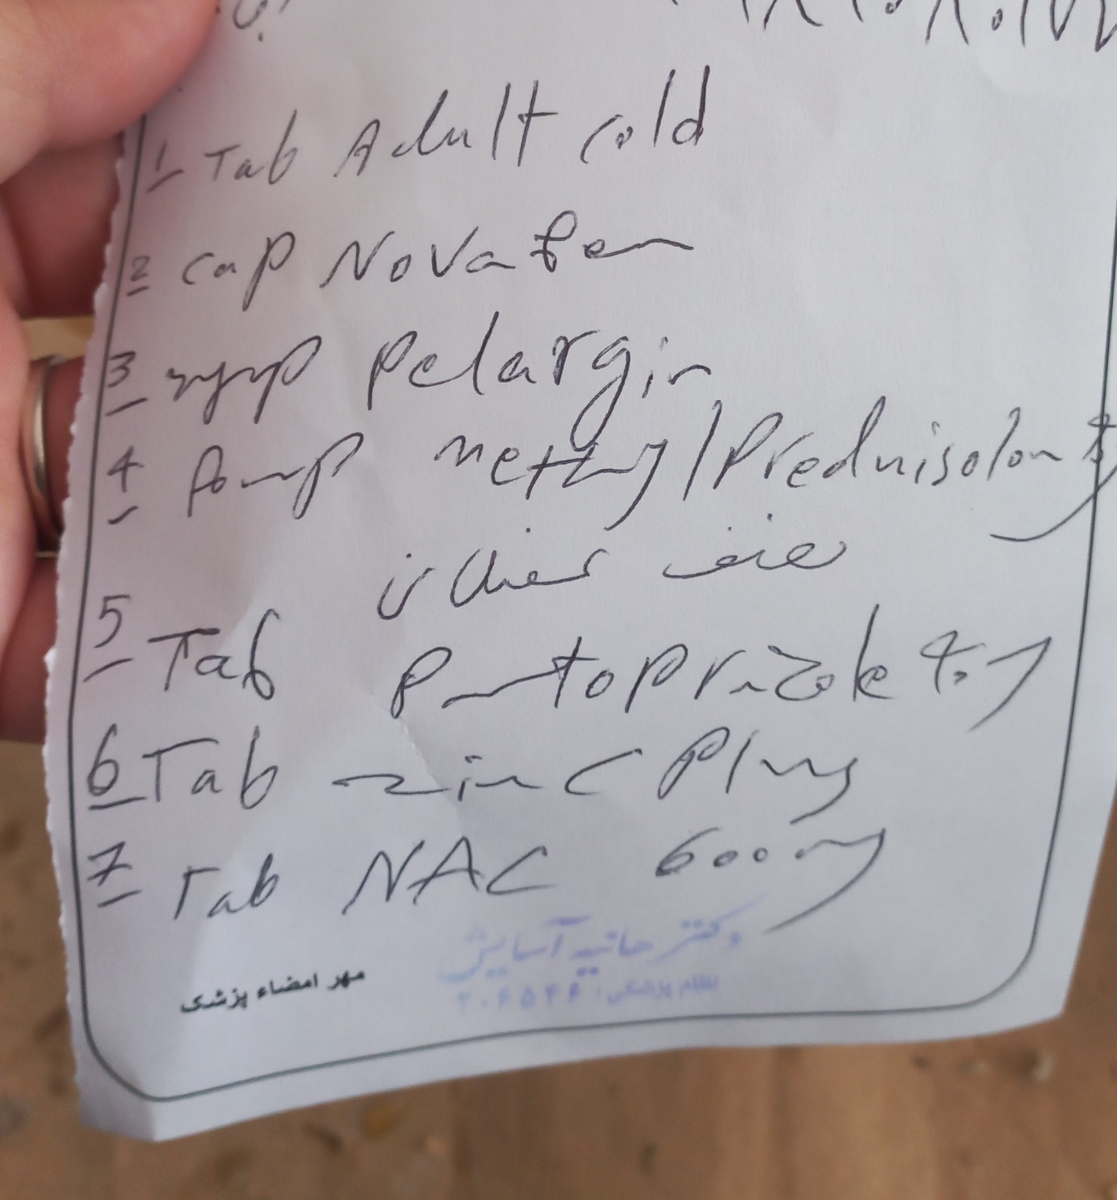 1 Tab Adult cold
2 cap Novafen
3 syrp Pelargin
4 Amp methylPrednisolon
5 Tab Pantoprazole 40
6 Tab zinc Plus
7 Tab NAC 600 mg
دکتر حانیه آسایش
نظام پزشکی:
مهر امضاء پزشک